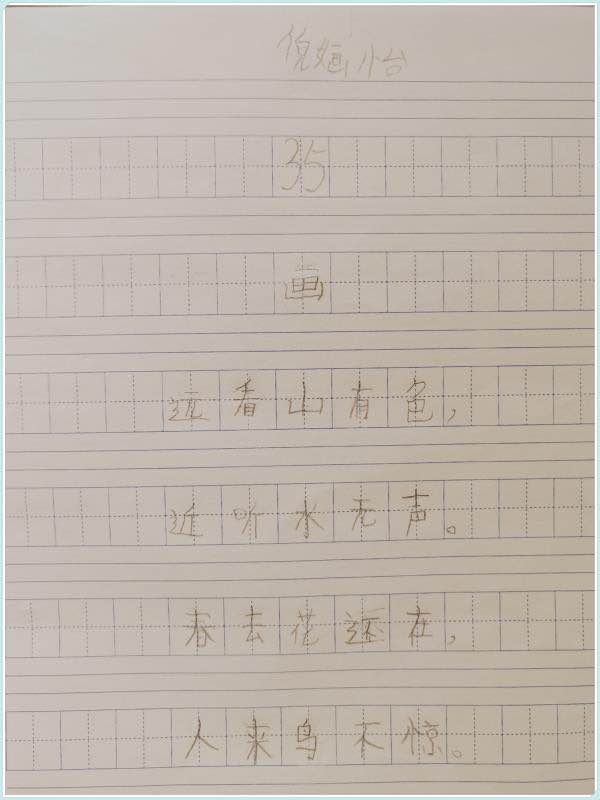 倪婳怡
35
画
远看山有色，
近听水无声。
春去花还在，
人来鸟不惊。